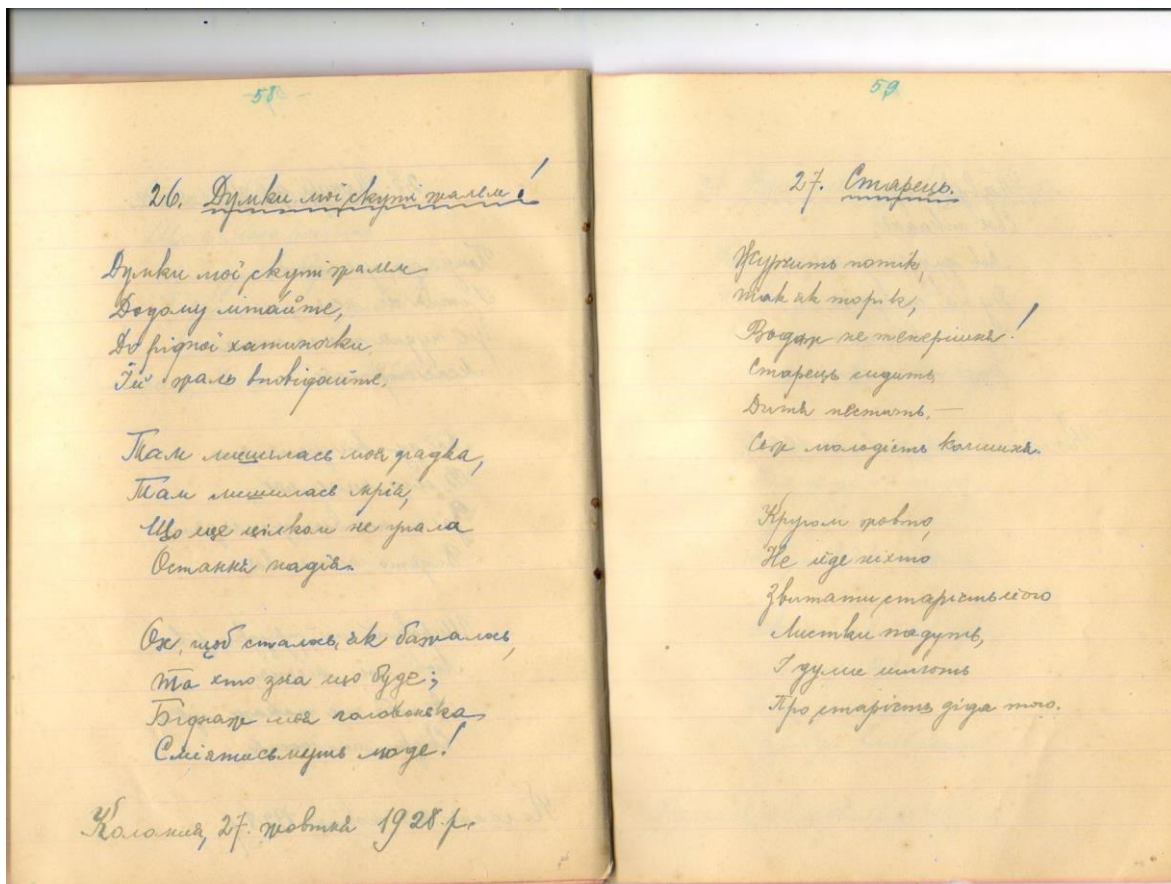 58
26. Думки мої скуті жалем!
Думки мої скуті жалем
Додому літайте,
До рідної хатиночки
Їй жаль вповідайте.
Там лишилась моя радка,
Там лишилась мрія,
Що ще цілком не
Остання надія.
Ох, щоб сталось, як бажалось,
Та хто зна що буде;
Бідная моя головонька
Сміятисьмуть люде!
27. жовтня 1928 р.
59
27. Старець.
Журчить потік,
так як торік,
Водаж не теперішня!
Старець сидить
Дитя пестить, —
Сеж молодість колишня.
Кругом жовто,
Не йде ніхто
Звитати старість його
Листки падуть,
І думи
Про старість діда того.